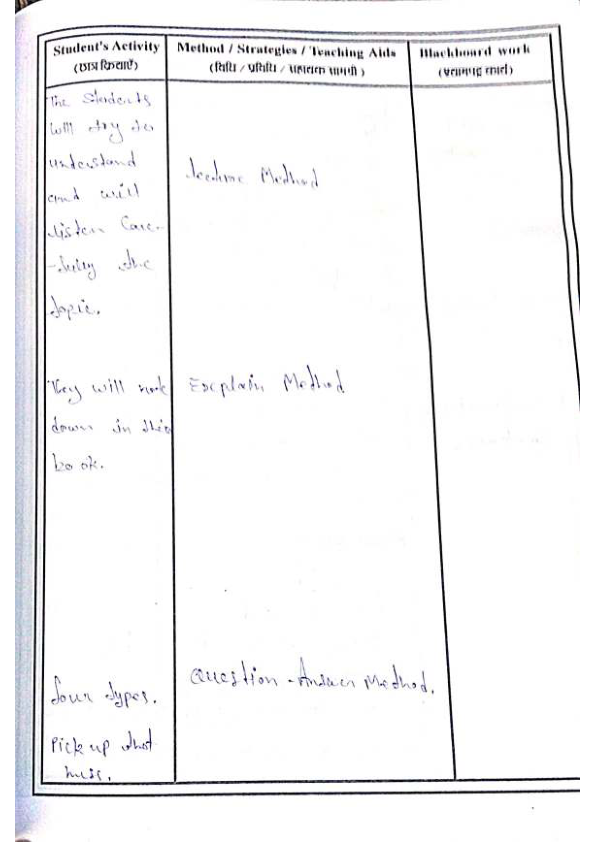 Student's Activity
(छात्र क्रियाएँ)
Method / Strategies / Teaching Aids
(विधि / प्रविधि / सहायक सामग्री)
Blackboard work
(श्यामपट्ट कार्य)
The Students
will try to
understand
and will
listen Care-
-fully the
topic.
Lecture Method
They will note
down in this
book.
Explain Method
four types.
Pick up that
Question - Answer Method.